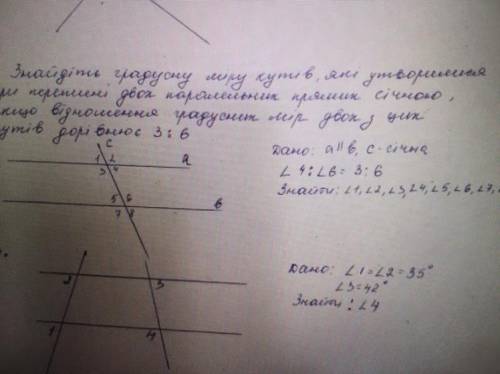 Знайдіть градусну міру кутів, які утворилися
при перетині двох паралельних прямих січною,
якщо відношення градусних мір двох з цих
кутів дорівнює 3:6
c
1 2 a
3 4
5 6 b
7 8
Дано: a||b, c-січна
∠4:∠6=3:6
Знайти: ∠1,∠2,∠3,∠4,∠5,∠6,∠7,∠
2 3
1 4
Дано: ∠1=∠2=35°
∠3=42°
Знайти: ∠4